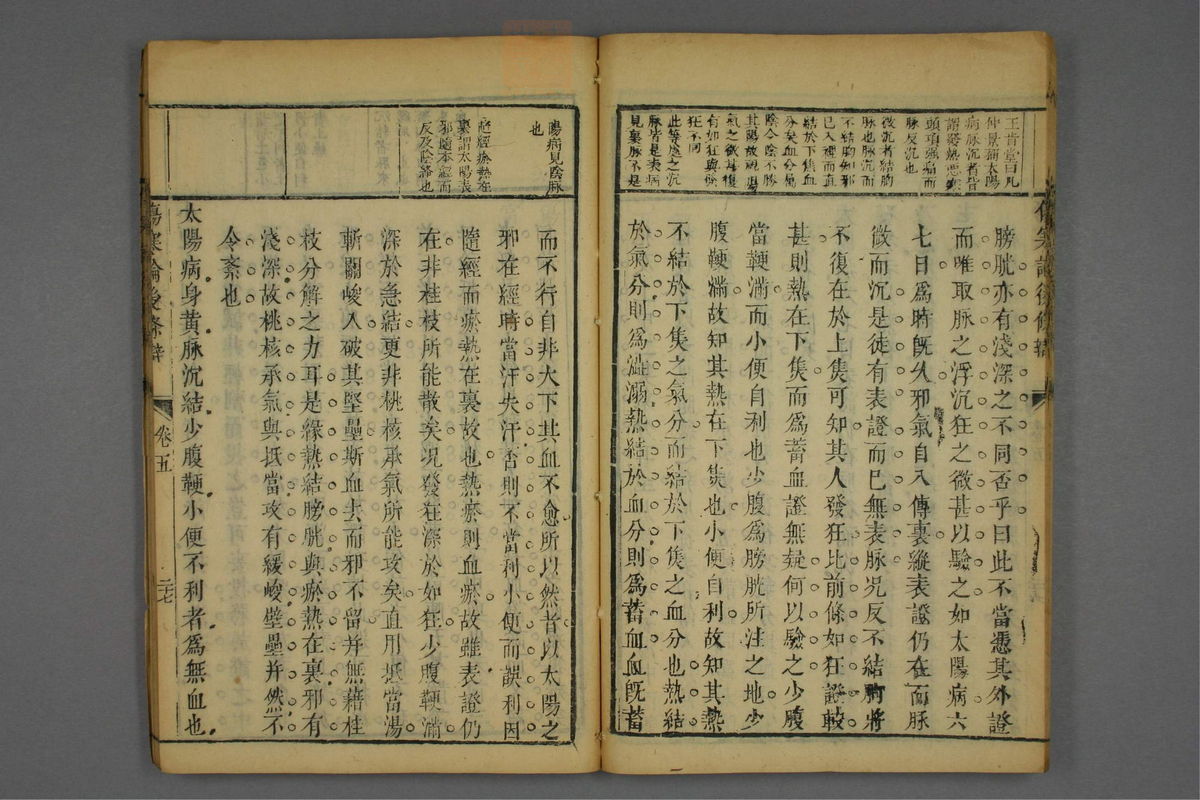 王肯堂曰凡
仲景稱太陽
病脉沉者皆
謂發熱惡寒
頭項强痛而
脉反沉也
微沉者結胸
脉也脉沉而
不結胸如邪
已入裡而直
結於下焦血
分矣血分屬
陰今陰不勝
其陽故現
氣之微甚復
有如狂與發
狂不同
此等處之沉
脉皆是表病
見裏脉不是
膀胱亦有淺深之不同否乎曰此不當憑其外證
而唯取脉之浮沉狂之微甚以驗之如太陽病六
七日爲時旣久邪氣自入傳裏縱表證仍在而脉
微而沉是徒有表證而已無表脉况反不結胸將
不復在於上焦可知其人發狂比前條如狂證較
甚則熱在下焦而爲蓄血證無疑何以驗之少腹
當鞕滿而小便自利也少腹爲膀胱所注之地少
腹鞕滿故知其熱在下焦也小便自利故知其熱
不結於下焦之氣分而結於下焦之血分也熱結
於氣分則爲澁溺熱結於血分則爲蓄血血旣蓄
陽病見陰脉
也
隨經瘀熱在
裏謂太陽表
邪隨本經而
反及陰絡也
而不行自非大下其血不愈所以然者以太陽之
邪在經時當汗失汗否則不當利小便而誤利因
隨經而瘀熱在裏故也熱瘀則血瘀故雖表證仍
在非桂枝所能散矣况發狂深於如狂少腹鞕滿
深於急結更非桃核承氣所能攻矣直用抵當湯
斬關峻入破其堅壘斯血去而邪不留并無藉桂
枝分解之力耳是緣熱結膀胱與瘀熱在裏邪有
淺深故桃核承氣與抵當攻有緩峻壁壘井然不
令紊也
太陽病身黄脉沉結少腹鞕小便不利者爲無血也
傷寒論後條辯
卷五
二七